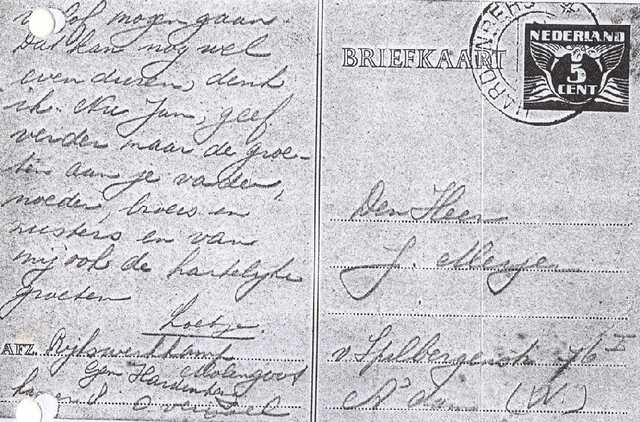 verlof mogen gaan.
Dat kan nog wel
even duren, denk
ik. Nu Jan, geef
verder maar de groe-
ten aan je vader,
moeder, broers en
zusters en van
mij ook de hartelijke
groeten
Loetje.
AFZ. Rijkswerkkamp
Molengoot
Gem Hardenberg
kamer 8. Overijsel
BRIEFKAART
HARDENBERG
NEDERLAND
5
CENT
Den Heer
J.
v. Spilbergenstr 76
A'dam (W.)